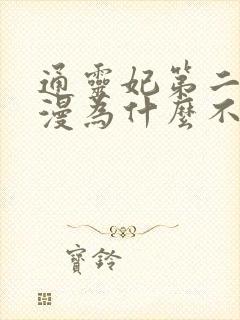 通靈妃第二
漫為什麼不
寶鈴